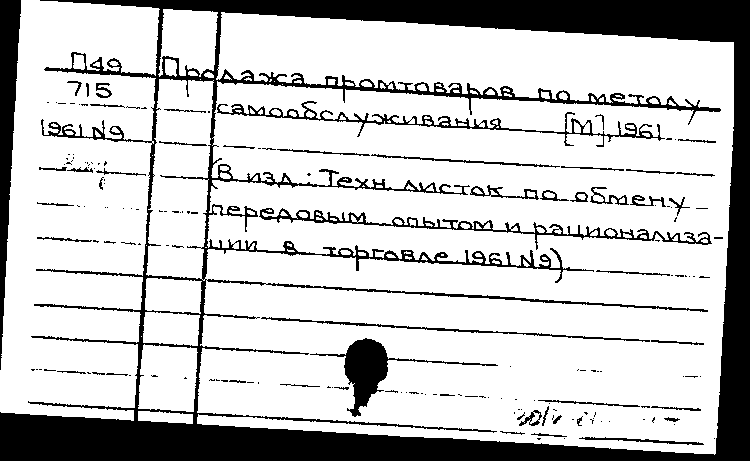 П49 Продажа промтоваров по методу
715
самообслуживания [М], 1961
1961 №9
(В изд.: Техн. листок по обмену
передовым опытом и рационализа-
ции в торговле 1961 №9).